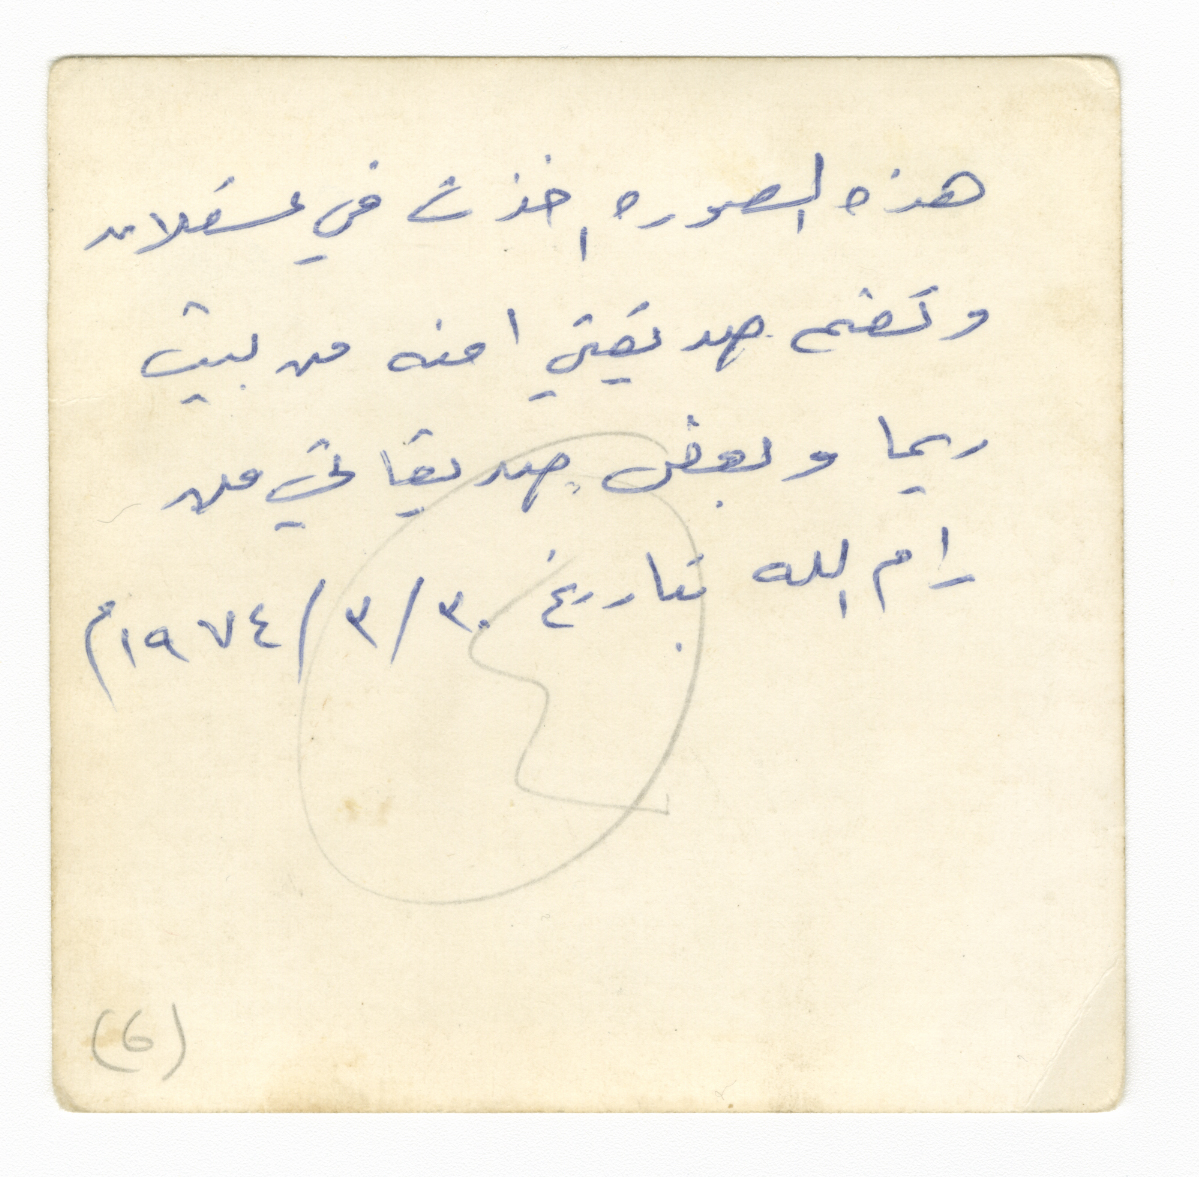 هذه الصوره اخذت في عسقلان
وتضم صديقتي امنه من بيت
ريما وبعض صديقاتي من
رام الله بتاريخ ٣٠/٣/١٩٧٤م
٤
(6)